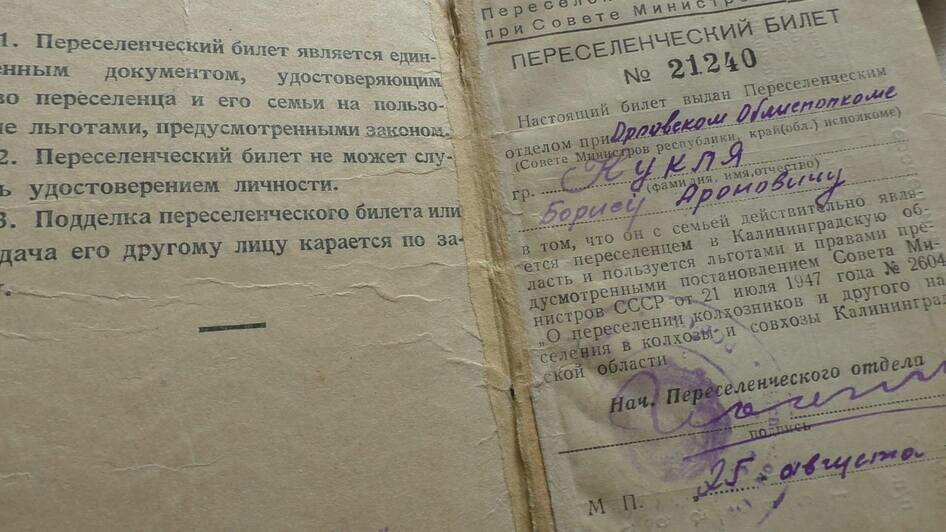 1. Переселенческий билет является един-
енным документом, удостоверяющим
во переселенца и его семьи на пользо-
ие льготами, предусмотренными законом.
2. Переселенческий билет не может слу-
ь удостоверением личности.
3. Подделка переселенческого билета или
дача его другому лицу карается по за-
у.
Переселен
при Совете Министро
ПЕРЕСЕЛЕНЧЕСКИЙ БИЛЕТ
№ 21240
Настоящий билет выдан Переселенческим
отделом при Орловском Облисполкоме
(Совете Министров республики, край(обл.) исполкоме)
гр. Кукля
(фамилия, имя, отчество)
Борису Ароновичу
в том, что он с семьей действительно явля-
ется переселенцем в Калининградскую об-
ласть и пользуется льготами и правами пре-
дусмотренными постановлением Совета Ми-
нистров СССР от 21 июля 1947 года № 2604
„О переселении колхозников и другого на
селения в колхозы и совхозы Калининград
ской области
Нач. Переселенческого отдела
подпись
М П. „25„ августа